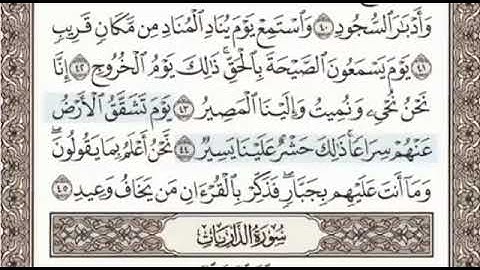 وَأَدْبَٰرَ ٱلسُّجُودِ ٤٠ وَٱسْتَمِعْ يَوْمَ يُنَادِ ٱلْمُنَادِ مِن مَّكَانٍ قَرِيبٍ
٤١ يَوْمَ يَسْمَعُونَ ٱلصَّيْحَةَ بِٱلْحَقِّ ۚ ذَٰلِكَ يَوْمُ ٱلْخُرُوجِ ٤٢ إِنَّا
نَحْنُ نُحْىِۦ وَنُمِيتُ وَإِلَيْنَا ٱلْمَصِيرُ ٤٣ يَوْمَ تَشَقَّقُ ٱلْأَرْضُ
عَنْهُمْ سِرَاعًا ۚ ذَٰلِكَ حَشْرٌ عَلَيْنَا يَسِيرٌ ٤٤ نَّحْنُ أَعْلَمُ بِمَا يَقُولُونَ ۖ
وَمَآ أَنتَ عَلَيْهِم بِجَبَّارٍ ۖ فَذَكِّرْ بِٱلْقُرْءَانِ مَن يَخَافُ وَعِيدِ ٤٥
سُورَةُ ٱلذَّارِيَاتِ